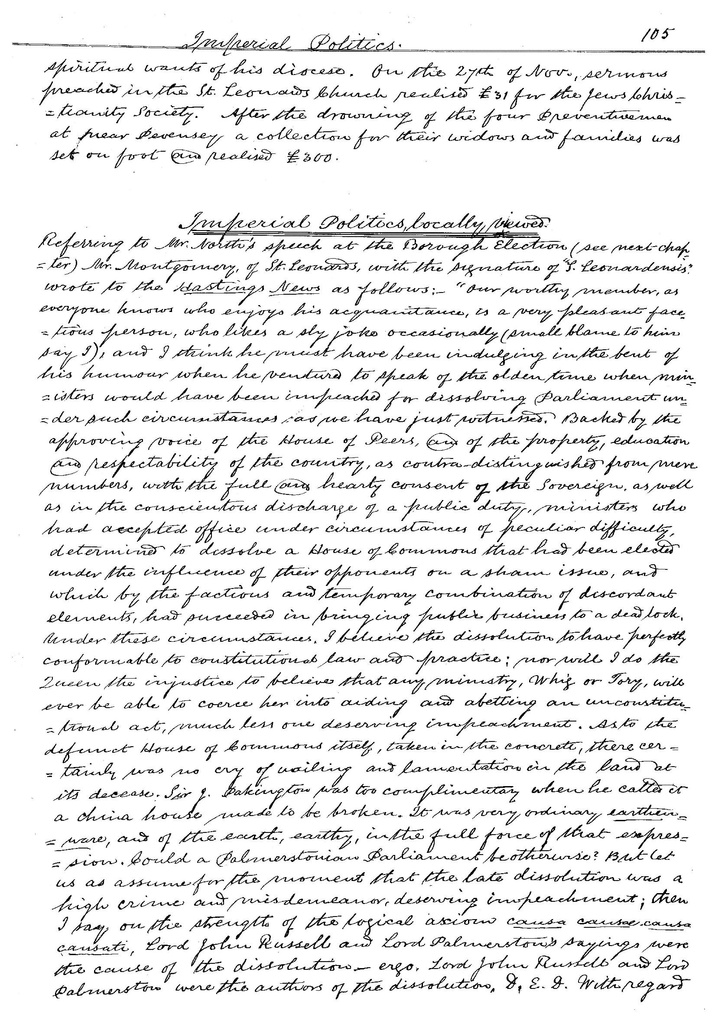 Imperial Politics. 105
spiritual wants of his diocese. On the 27th of Nov., sermons
preached in the St. Leonards Church realised £31 for the Jews Chris-
-tianity Society. After the drowning of the four Preventivemen
at near Pevensey a collection for their widows and families was
set on foot and realised £300.
Imperial Politics, locally viewed.
Referring to Mr. North's speech at the Borough Election (see next chap-
-ter) Mr. Montgomery, of St. Leonards, with the signature of "S. Leonardensis"
wrote to the Hastings News as follows:- "Our worthy member, as
everyone knows who enjoys his acquanitance, is a very pleasant face-
-tious person, who likes a sly joke occasionally (small blame to him
say I), and I think he must have been indulging in the bent of
his humour when he ventured to speak of the olden time when min-
-isters would have been impeached for dissolving Parliament un-
-der such circumstances as we have just witnessed. Backed by the
approving voice of the House of Peers, and of the property, education
and respectability of the country, as contra-distinguished from mere
numbers, with the full and hearty consent of the Sovereign, as well
as in the conscientous discharge of a public duty, ministers who
had accepted office under circumstances of peculiar difficulty,
determined to dissolve a House of Commons that had been elected
under the influence of their opponents on a sham issue, and
which by the factious and temporary combination of discordant
elements, had succeeded in bringing public business to a deadlock.
Under these circumstances, I believe the dissolution to have perfectly
conformable to constitutional law and practice; nor will I do the
Queen the injustice to believe that any ministry, Whig or Tory, will
ever be able to coerce her into aiding and abetting an unconstitu-
-tional act, much less one deserving impeachment. As to the
defunct House of Commons itself, taken in the concrete, there cer-
-tainly was no cry of wailing and lamentation in the land at
its decease. Sir J. Pakington was too complimentary when he called it
a china house made to be broken. It was very ordinary earthen-
-ware, and of the earth, earthy, in the full force of that expres-
-sion. Could a Palmerstonian Parliament be otherwise? But let
us as assume for the moment that the late dissolution was a
high crime and misdemeanor, deserving impeachment; then
I say, on the strength of the logical axiom causa causæ causa
causati, Lord John Russell and Lord Palmerston's sayings were
the cause of the dissolution - ergo, Lord John Russell and Lord
Palmerston were the authors of the dissolution, D. E. D. With regard